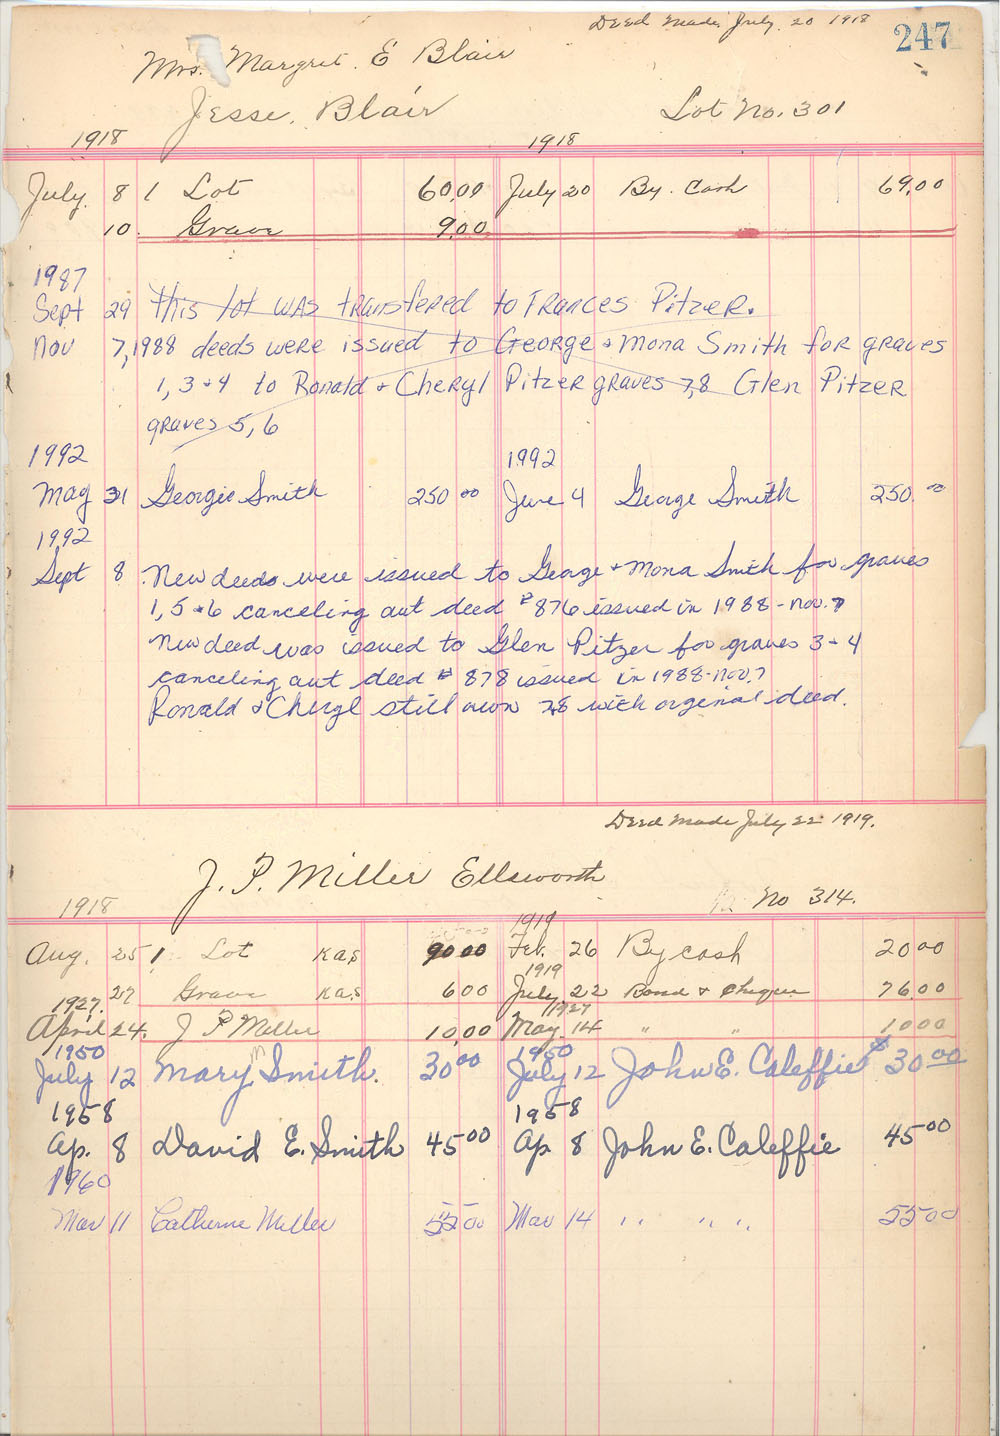 Deed Made July. 20 1918
247
Mrs. Margret. E Blair
Jesse. Blair Lot No. 301
1918 1918
July. 8 1 Lot 60.00 July 20 By. Cash 69.00
10 Grave 9.00
1987
Sept 29 This lot was transfered to Frances Pitzer.
Nov 7, 1988 deeds were issued to George & Mona Smith for graves
1, 3 & 4 to Ronald & Cheryl Pitzer graves 7,8 Glen Pitzer
graves 5, 6
1992 1992
May 31 George Smith 250 00 June 4 George Smith 250. 00
1992
Sept 8 New deeds were issued to George & Mona Smith for graves
1, 5 & 6 canceling out deed # 876 issued in 1988 - Nov. 7
New deed was issued to Glen Pitzer for graves 3 & 4
canceling out deed # 878 issued in 1988 - Nov. 7
Ronald & Cheryl still own 7,8 with orginial deed.
Deed Made July 22 1919.
J. P. Miller Ellsworth
1918 No 314.
1919
Aug. 25 1 Lot Kas 90 00 Feb. 26 By cash 20 00
1919
27 Grave Kas 6 00 July 22 Bond & Cheque 76.00
1927. 1927
April 24. J P Miller 10,00 May. 14 " " 10 00
1950 1950
July 12 Mary M Smith. 30 00 July 12 John E. Caleffie $ 30 00
1958 1958
Ap. 8 David E. Smith 45 00 Ap 8 John E. Caleffie 45 00
1960
Mar 11 Catherine Miller 55 00 Mar 14 " " " 55 00